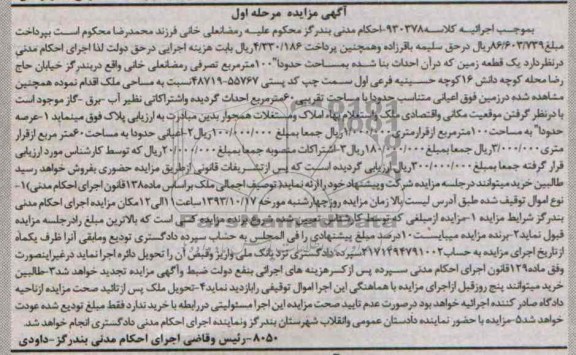 آگهی مزایده مرحله اول
بموجب اجرائیه کلاسه ۹۳۰۳۷۸-احکام مدنی بندرگز محکوم علیه رمضانعلی خانی فرزند محمدرضا محکوم است بپرداخت
مبلغ ۸۶/۶۰۳/۷۳۹ریال درحق سلیمه باقرزاده وهمچنین پرداخت ۴/۳۳۰/۱۸۶ریال بابت هزینه اجرایی درحق دولت لذا اجرای احکام مدنی
درنظردارد یک قطعه زمین که درآن احداث بنا شده بمساحت حدودا"۱۰۰مترمربع تصرفی رمضانعلی خانی واقع دربندرگز خیابان حاج
رضا محله کوچه دانش ۱۶کوچه حسینیه فرعی اول سمت چپ کد پستی ۵۵۷۶۷-۴۸۷۱۹نسبت به مساحی ملک اقدام نموده همچنین
مشاهده شده درزمین فوق اعیانی متناسب حدودا با مساحت تقریبی ۶۰مترمربع احداث گردیده واشتراکاتی نظیر آب -برق -گاز موجود است
با درنظر گرفتن موقعیت مکانی واقتصادی ملک و استعلام بهاء املاک ومستغلات همجوار بدین مبادرت به ارزیابی پلاک فوق مینماید ۱-عرصه
حدودا" به مساحت ۱۰۰مترمربع ازقرارمتری ۱/۰۰۰/۰۰۰ریال جمعا بمبلغ ۱۰۰/۰۰۰/۰۰۰ریال ۲-اعیانی حدودا به مساحت ۶۰متر مربع ازقرار
متری ۳/۰۰۰/۰۰۰ریال جمعا بمبلغ ۱۸۰/۰۰۰/۰۰۰ریال ۳-اشتراکات منصوبه جمعا بمبلغ ۲۰/۰۰۰/۰۰۰ریال که توسط کارشناس مورد ارزیابی
قرار گرفته جمعا بمبلغ ۳۰۰/۰۰۰/۰۰۰ریال ارزیابی گردیده است که پس ازتشریفات قانونی ازطریق مزایده حضوری بفروش خواهد رسید
طالبین خرید میتوانند درجلسه مزایده شرکت وپیشنهاد خود را ارئه نمایند( توصیف اجمالی ملک براساس ماده۱۳۸قانون اجرای احکام مدنی)۱-
نوع اموال توقیف شده طبق آدرس لیست بالا زمان مزایده روزچهارشنبه مورخه ۱۳۹۳/۱۰/۱۷ساعت ۱۱الی۱۲مکان مزایده اجرای احکام مدنی
بندرگز شرایط مزایده ۱-مزایده ازمبلغی که توسط کارشناس تعیین شده شروع برنده مزایده کسی است که بالاترین مبلغ رادرجلسه مزایده
قبول نماید۲-برنده مزایده میبایست۱۰درصد مبلغ پیشنهادی را فی المجلس به حساب سپرده دادگستری تودیع ومابقی آنرا ظرف یکماه
ازتاریخ اجرای مزایده به حساب۲۱۷۱۲۹۴۷۹۱۰۰۲سپرده دادگستری نزد بانک ملی واریز وقبض آن را تحویل دائره اجرا نماید درغیراینصورت
وفق ماده۱۲۹قانون اجرای احکام مدنی سپرده پس ازکسرهزینه های اجرائی بنفع دولت ضبط وآگهی مزایده تجدید خواهد شد۳-طالبین
خرید میتوانند پنج روزقبل ازاجرای مزایده با هماهنگی این اجرا اموال توقیفی رابازدید نمایند۴-تحویل ملک پس ازتائید صحت مزایده ازناحیه
دادگاه صادر کننده اجرائیه خواهد بود درصورت عدم تایید صحت مزایده این اجرا مسئولیتی دررابطه با خریدندارد فقط مبلغ تودیع شده عودت
خواهد شد۵-مزایده با حضور نماینده دادستان عمومی وانقلاب شهرستان بندرگز ونماینده اجرای احکام مدنی دادگستری انجام خواهد شد.
۸۰۵۰-رئیس وقاضی اجرای احکام مدنی بندرگز-داودی